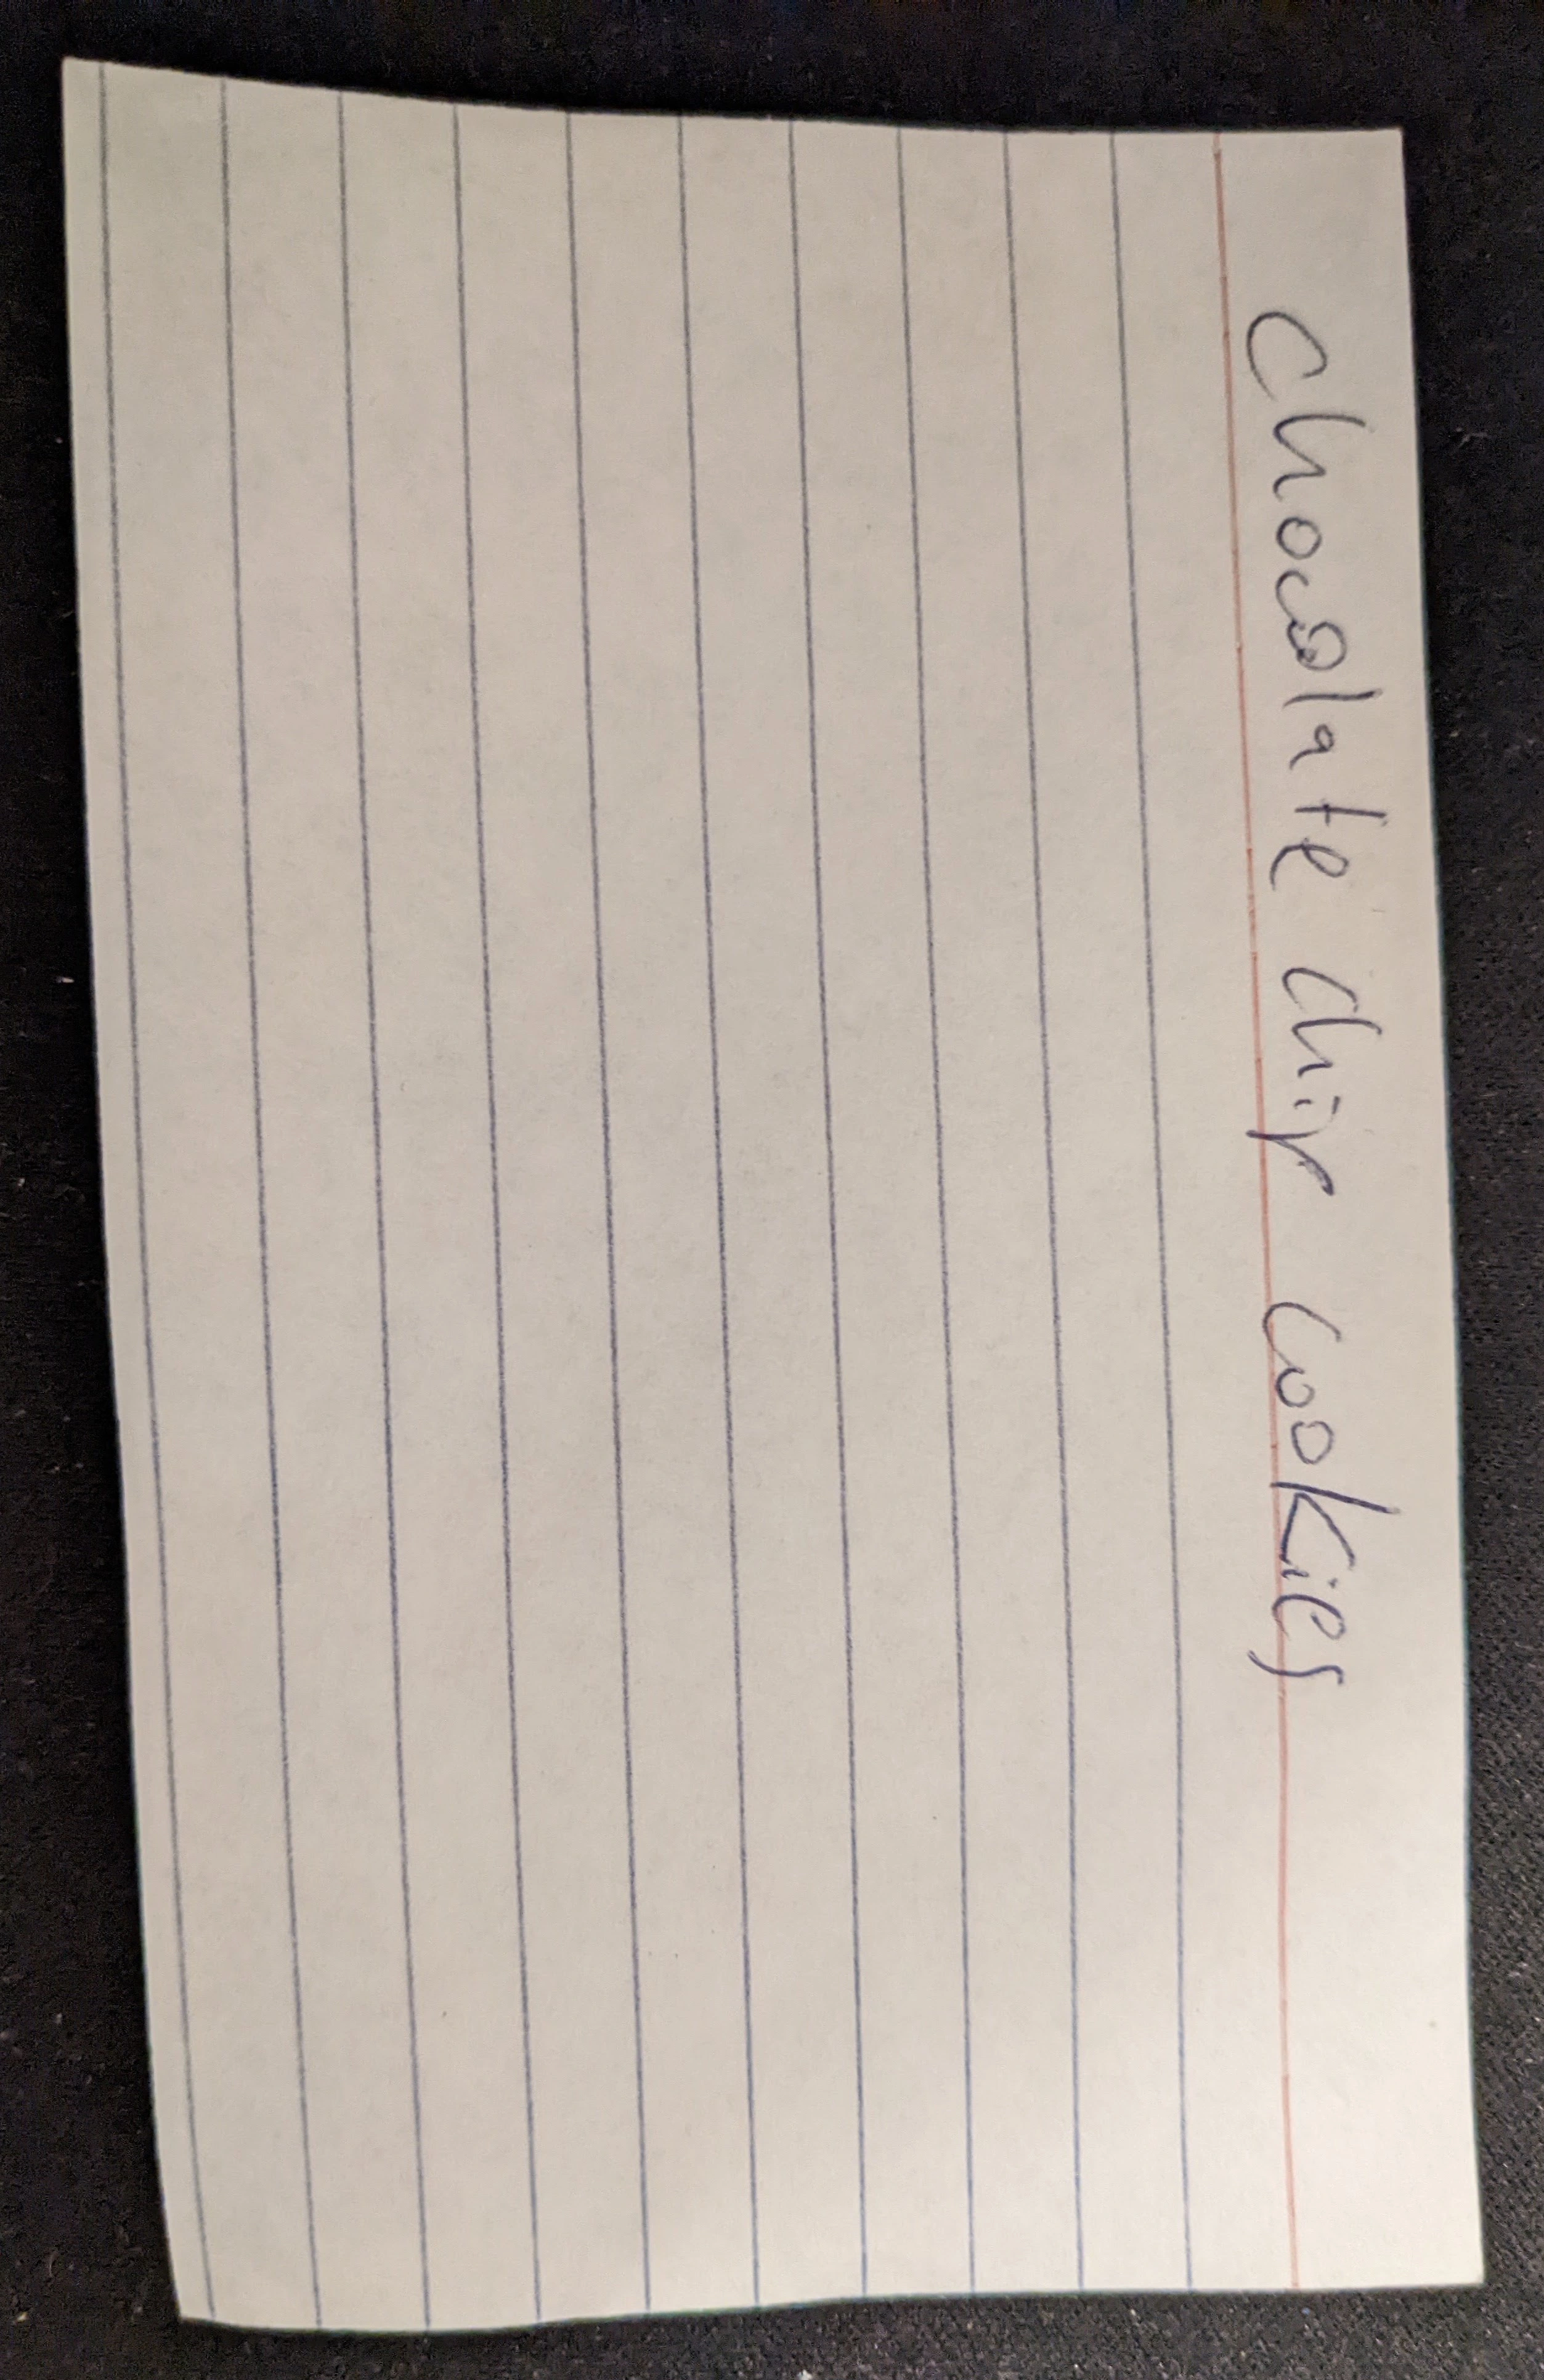 Chocolate chip cookies